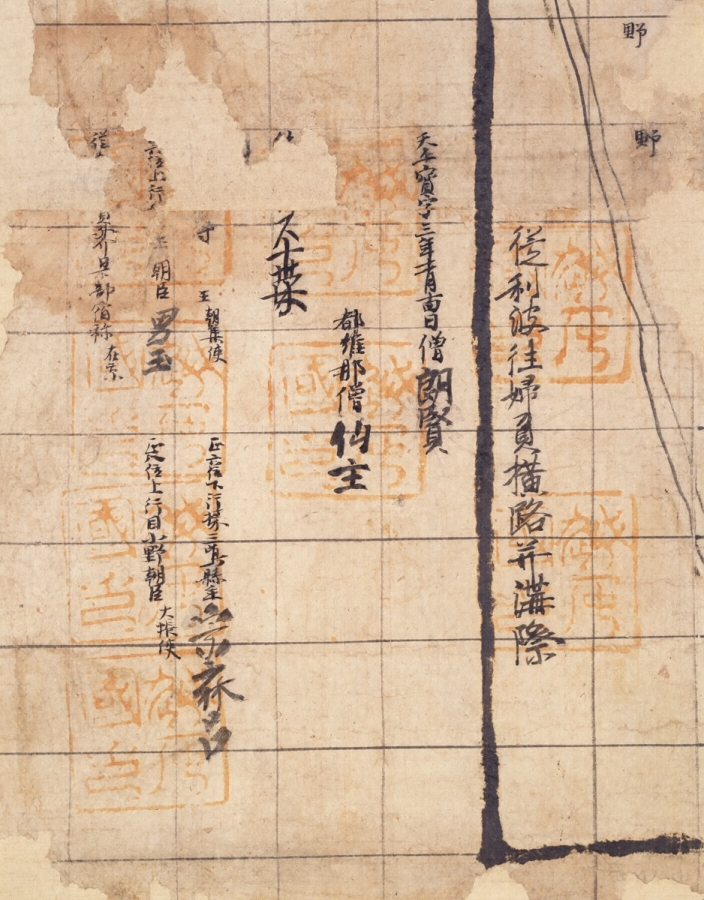 野
野
從利波往婦負横路并溝際
天平寶字三年十一月十四日僧朗賢
都維那僧仙主
守
王 朝集使
正六位下行掾三嶋縣主宗麻呂
六位上行
朝臣男玉
位上行目小野朝臣 大帳使
從
部宿祢 在京
越中國印